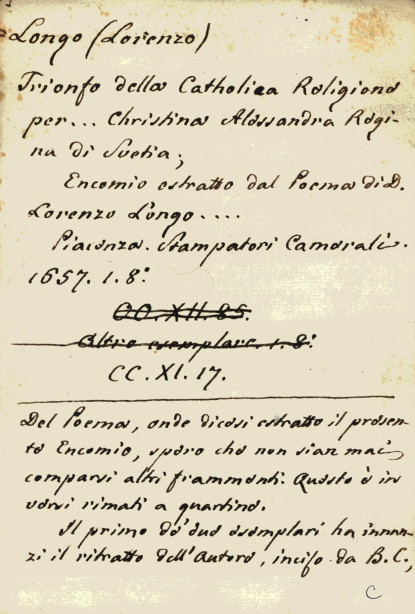 Longo (Lorenzo)
Trionfo della Catholica Religione
per... Christina Alessandra Regi-
na di Svetia;
Encomio estratto dal Poema di D.
Lorenzo Longo....
Piacenza. Stampatori Camerali.
1657. 1. 8.º
CC. XII. 85.
Altro esemplare. 1. 8.º
CC. XI. 17.
Del Poema, onde dicesi estratto il presen-
te Encomio, spero che non sian mai
comparsi altri frammenti. Questo è in
versi rimati a quartine.
Il primo de' due esemplari ha innan-
zi il ritratto dell'Autore, inciso da B. C.,
C